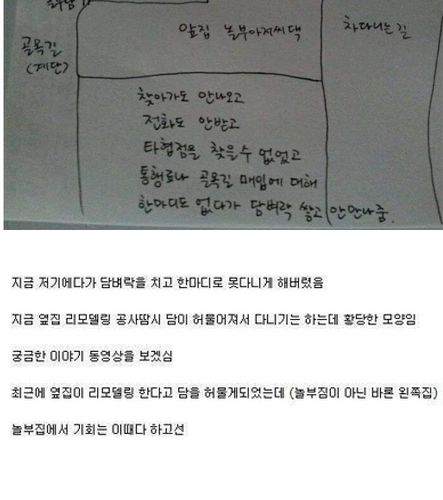 옆집 놀부아저씨댁
차다니는길
골목길
(계단)
찾아가도 안나오고
전화도 안받고
타협점을 찾을수 없었고
통행로나 골목길 매입에 대해
한마디도 없다가 담벼락 쌓고 안만나줌.
지금 저기에다가 담벼락을 치고 한마디로 못다니게 해버렸음
지금 옆집 리모델링 공사땀시 담이 허물어져서 다니기는 하는데 황당한 모양임
궁금한 이야기 동영상을 보겠심
최근에 옆집이 리모델링 한다고 담을 허물게되었는데 (놀부짐이 아닌 바론 왼쪽집)
놀부집에서 기회는 이때다 하고선